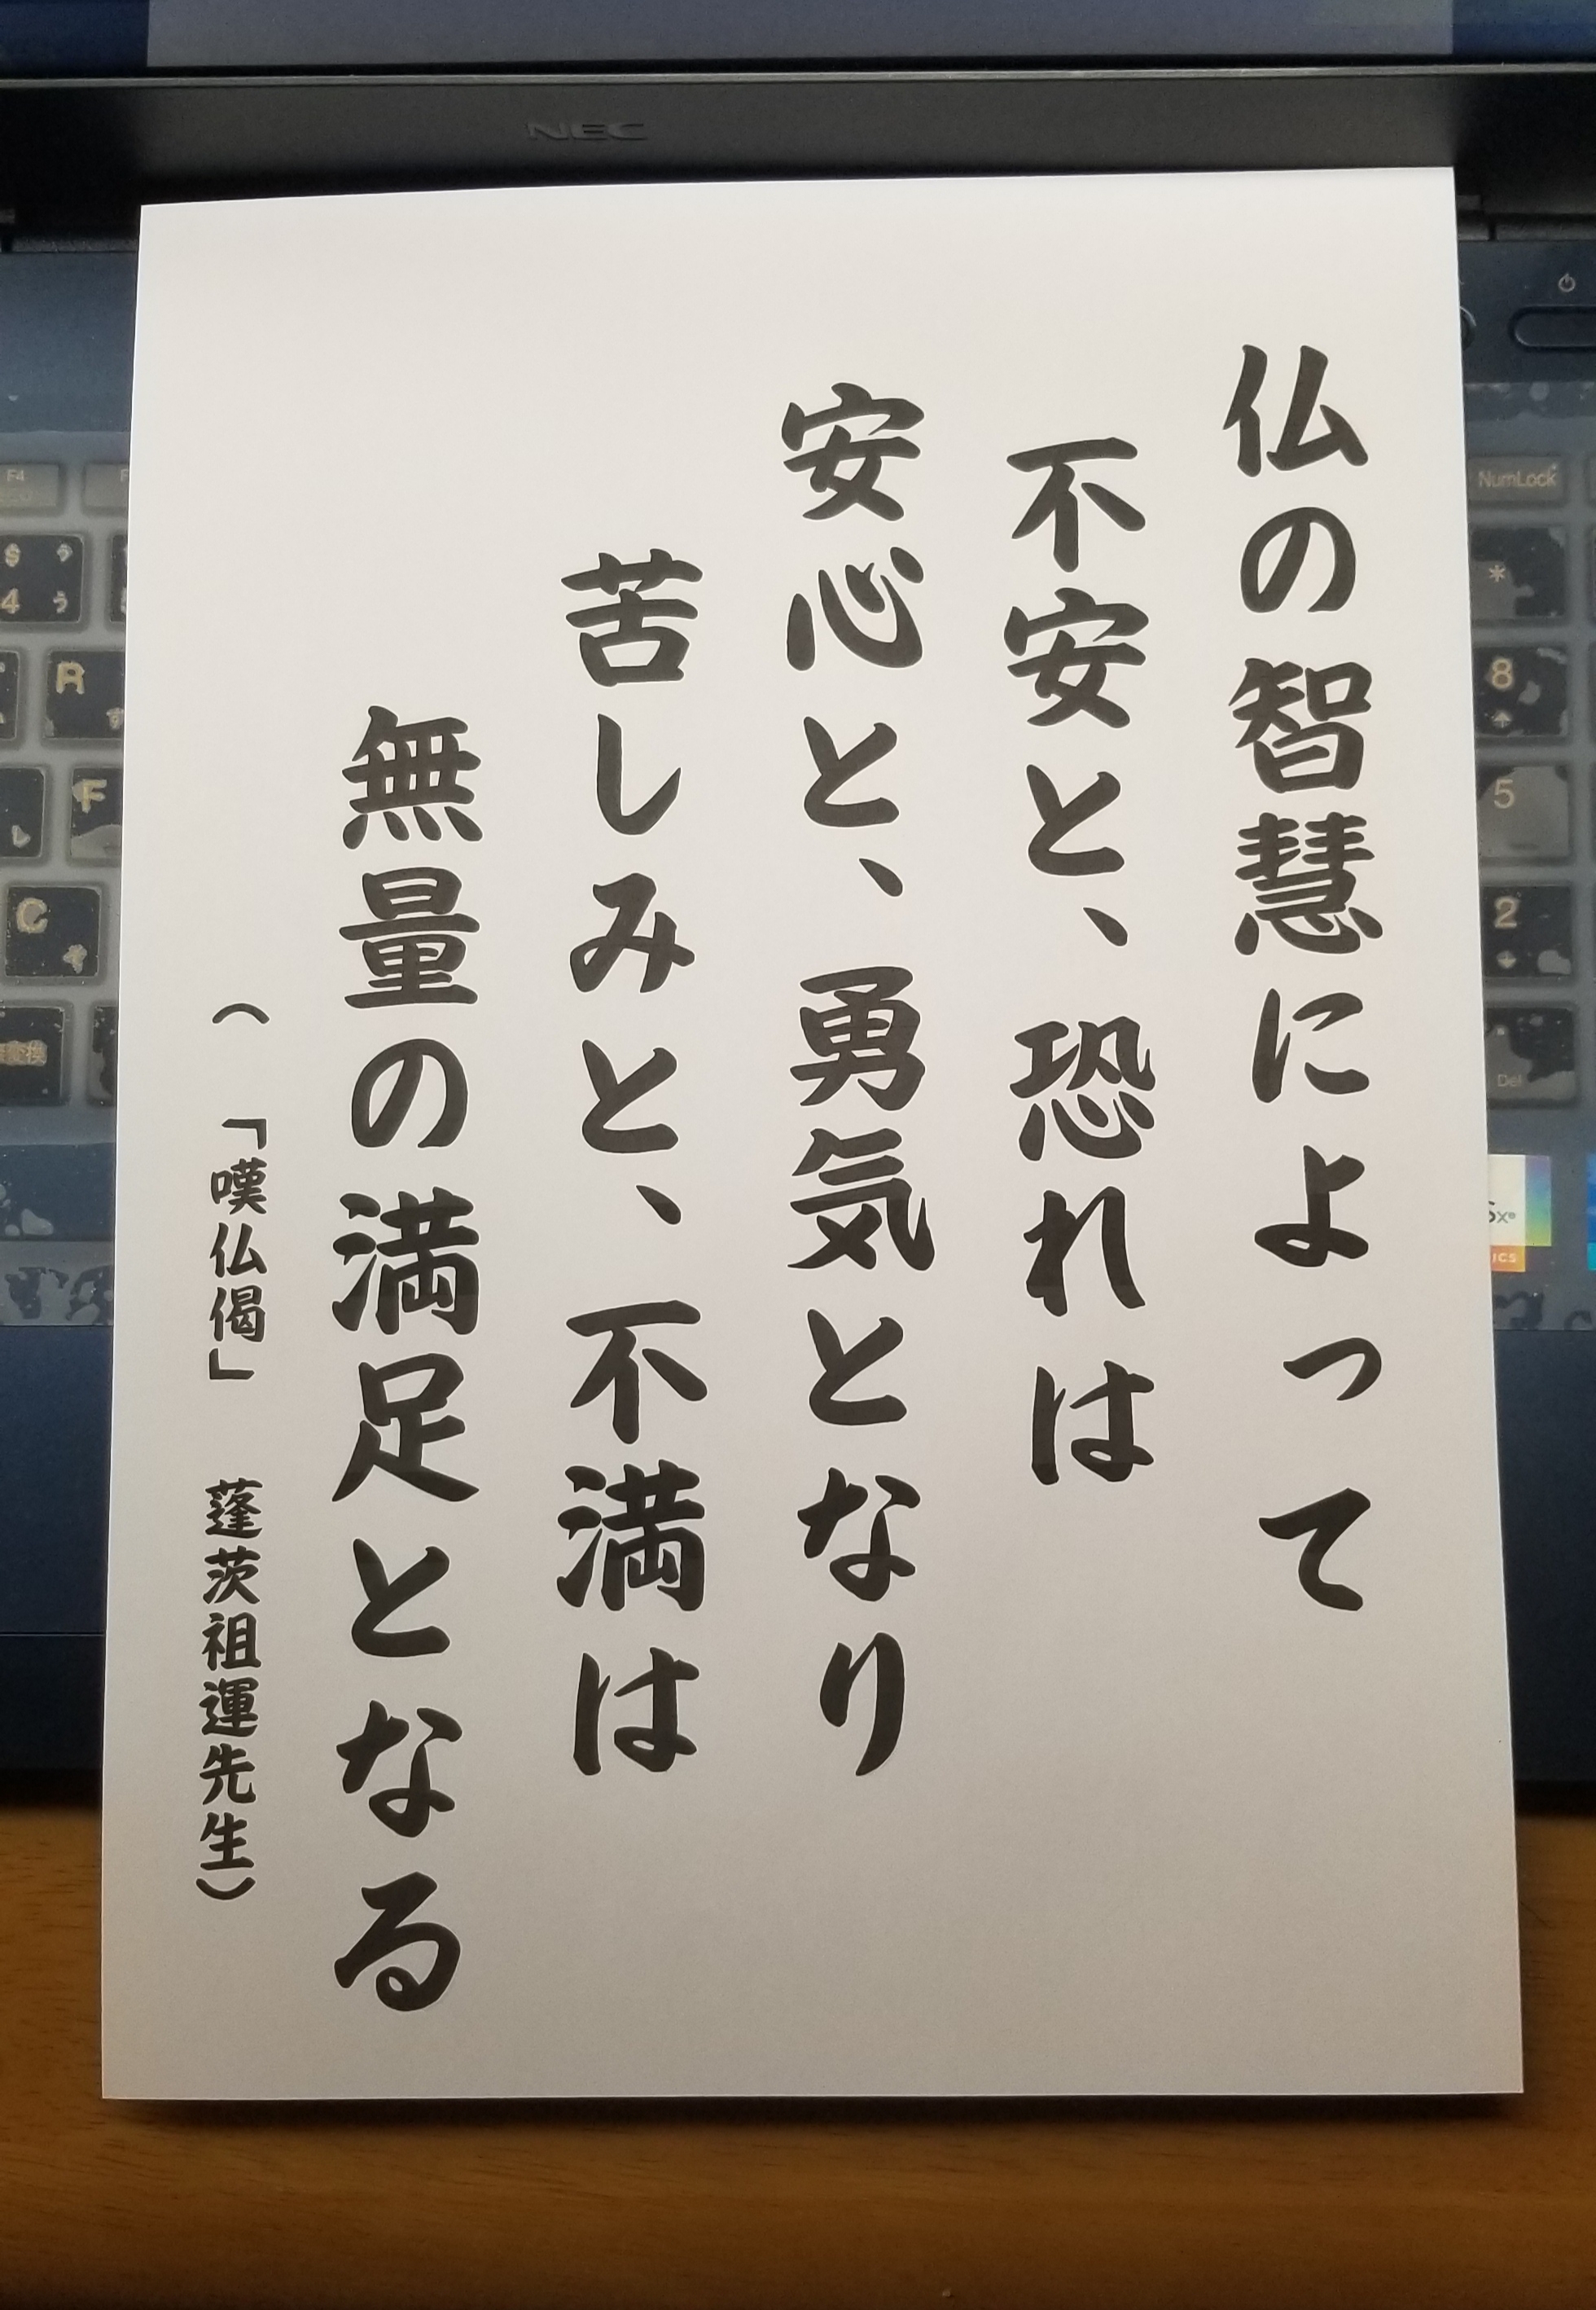 NEC
仏の智慧によって
不安と、恐れは
安心と、勇気となり
苦しみと、不満は
無量の満足となる
（　「嘆仏偈」　蓬茨祖運先生）
F4
NumLock
$ う
4 う
*
R
す
8
F
5
C
そ
2
Del